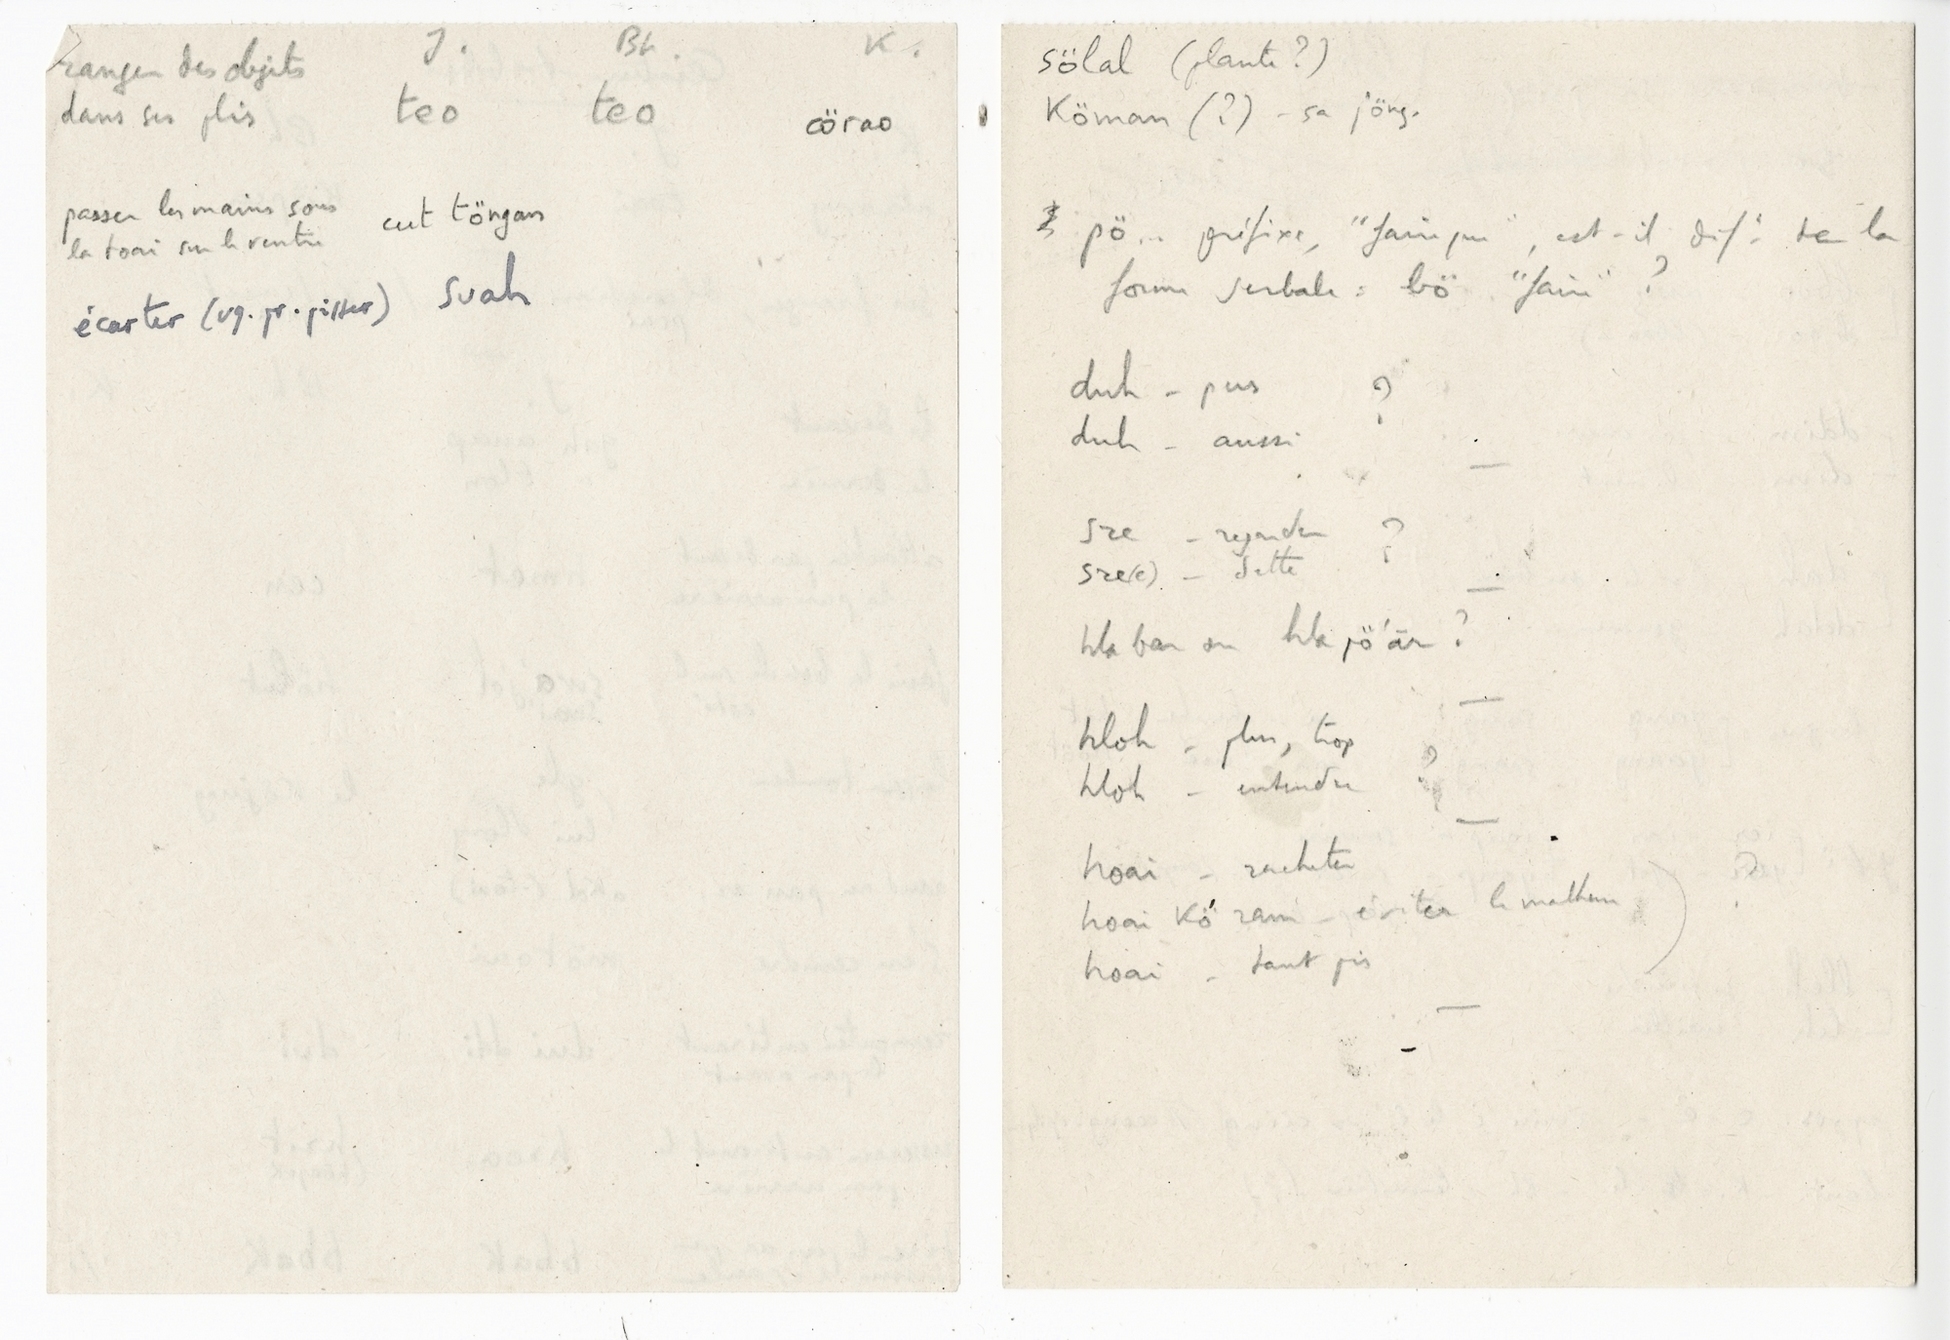 J. Bh. K.
ranger des objets
dans ses plis teo teo cörao
passer les mains sous cut töngan
la toai sur le ventre
écarter (vg. pr. pisser) svah
sölal (plante?)
Köman (?) - sa jöng.
pö... préfixe, "faire que", est-il dif. de la
forme verbale : bö "faire" ?
duh - pus ?
duh - aussi
sre - regarder ?
sre(e) - dette
hla ban ou hla pö'ăr ?
hloh - plus, trop ?
hloh - entendre
hoai - racheter
hoai kö ram - éviter le malheur ?
hoai - tant pis